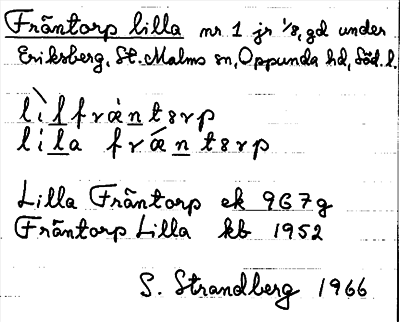 Fräntorp lilla nr 1 jr 1/8, gd under
Eriksberg, St. Malms sn, Oppunda hd, Söd. l.
lìlfrántərp
lila frǽntərp
Lilla Fräntorp ek 9G7g
Fräntorp Lilla kb 1952
S. Strandberg 1966